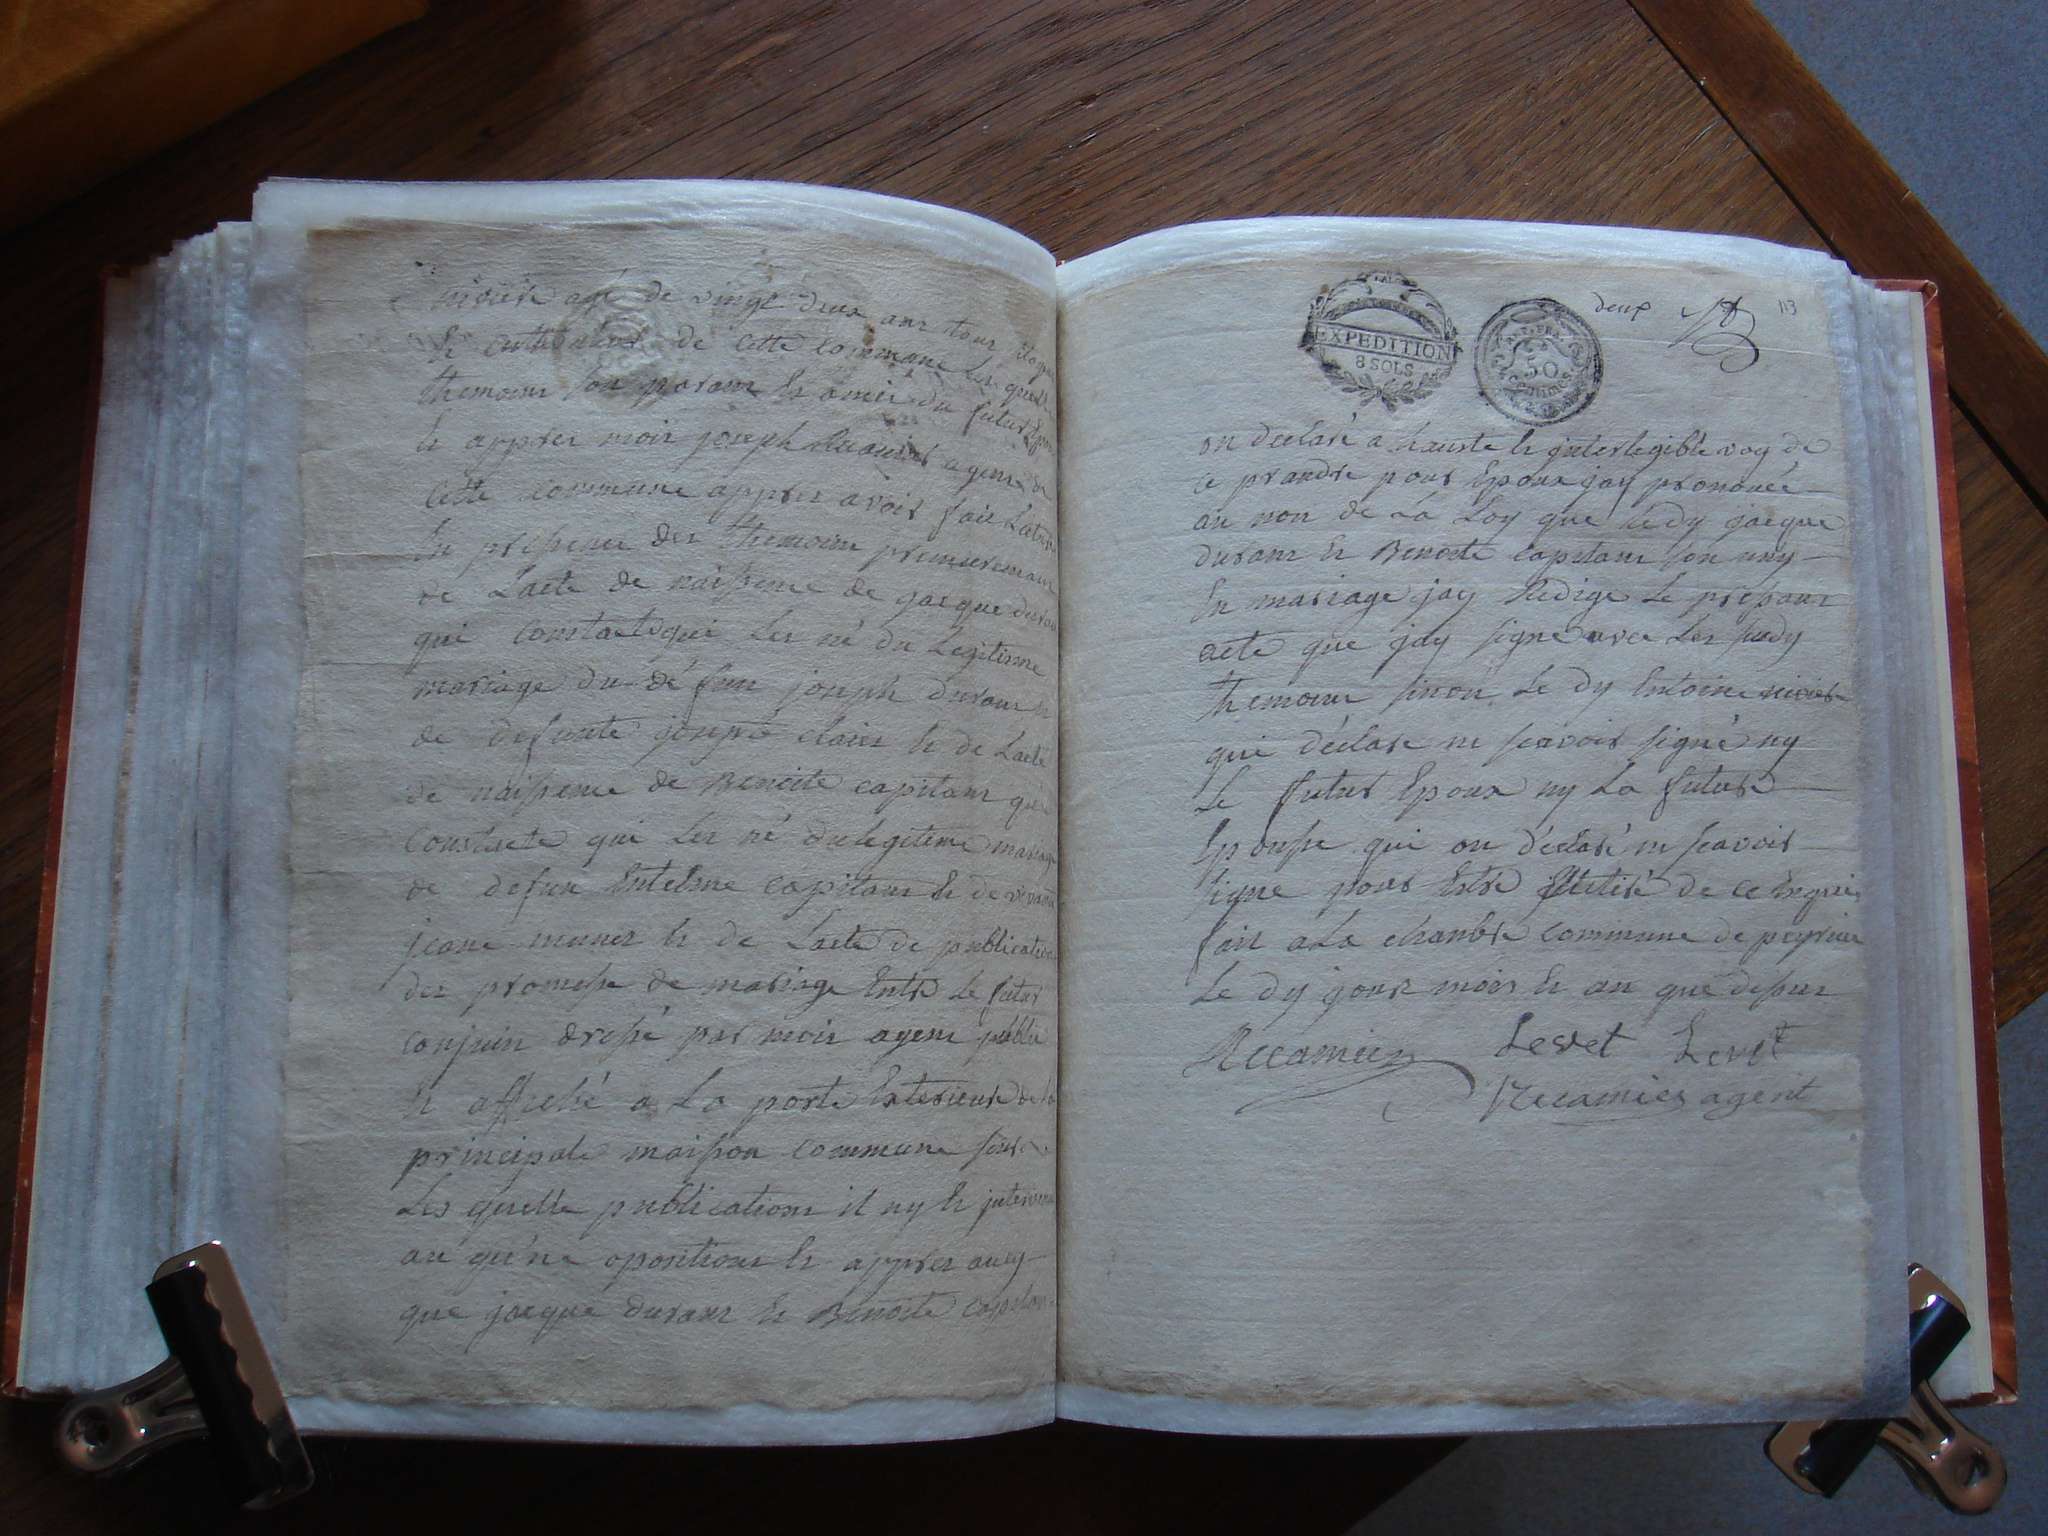 niviere agé de vingt deux ans tous
h cultivateur de cette commune les quelle
themoins son parans h amis du futur Epoux
h appres moir joseph agent de
cette commune appres avoir fait
En presence des themoins premieremant
de Lacte de naissence de jacque duran
qui constate qui Les né du Legitime
mariage du défun joseph durans h
de defunte clair h de Lacte
de naissence de Benoite capitans que
constate qui Les né dulegiteme mariage
de defun Entelme capitans h de vivante
jeane h de Lacte de publication
des promesse de mariage Entre Le futur
conjoin dressé par moir agent public
h affiché a La porte Exterieure de la
principale maison commune
Les quelle publications il ny h
au qu'ne opositions h appres avoy
que jacque durans h Benoite capitans
EXPEDITION
8 SOLS
50
centimes
deux 113
on declaré a hauste h jnterlegible voy de
ce prandre pour Epoux jay pronomcé
au non de La Loy que Ledy jacque
durans h Benoite capitans son uny
En mariage jay Redige Le presans
acte que jay signe avec Les sudy
themoins sinon Le dy Entoine nivier
qui déclare ne scavoir signé ny
Le futur Epoux ny La future
Epousse qui on déclaré ne scavoir
signe pour de ce Enquis
fait a La chambre commune de peyrieu
Le dy jour mois h an que dessus
Récamier Levet Levet
Récamier agent